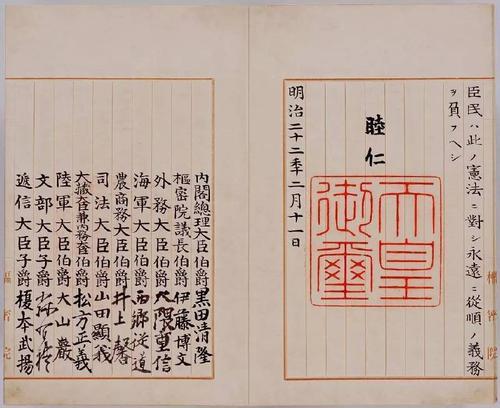 樞密院
臣民ハ此ノ憲法ニ對シ永遠ニ從順ノ義務
ヲ負フヘシ
睦仁
天皇御璽
明治二十二年二月十一日
內閣總理大臣伯爵黑田清隆
樞密院議長伯爵伊藤博文
外務大臣伯爵大隈重信
海軍大臣伯爵西鄉從道
農商務大臣伯爵井上馨
司法大臣伯爵山田顯義
大藏大臣兼內務大臣伯爵松方正義
陸軍大臣伯爵大山巖
文部大臣子爵森有禮
遞信大臣子爵榎本武揚
樞密院